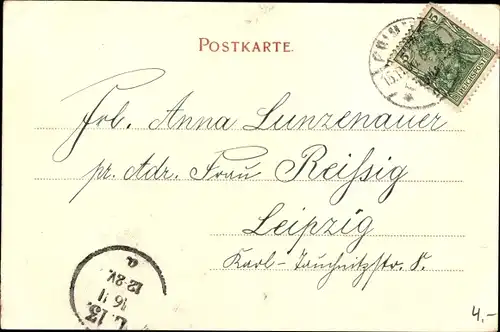 POSTKARTE.
Frl. Anna Lunzenauer
pr. Adr. Frau Reissig
Leipzig
Karl-Tauchnitzstr. 8.
L. 13.
16 11
12-2V.
a
5
4.-